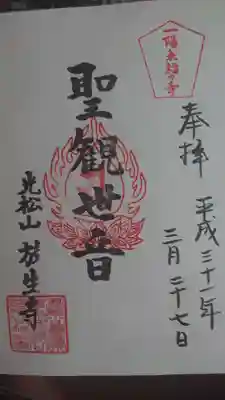 一陽来福の寺
奉拝 平成三十一年
三月二十七日
聖観世音
光松山 放生寺